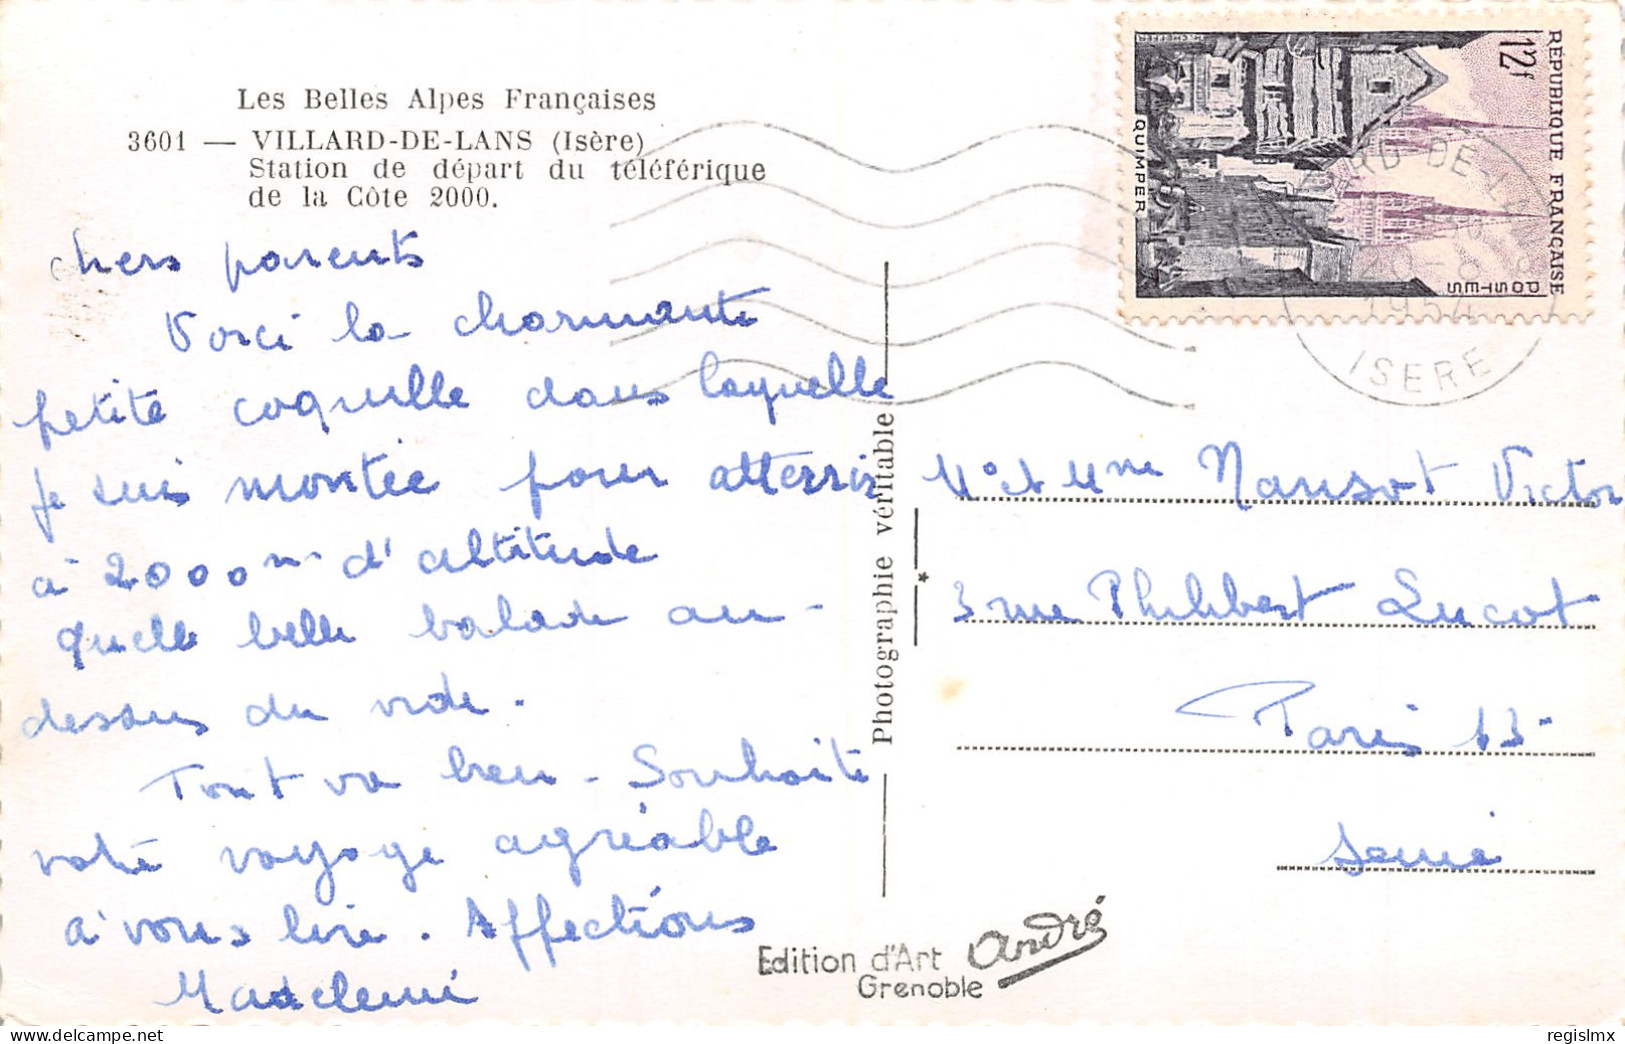 Les Belles Alpes Françaises
3601 — VILLARD-DE-LANS (Isère)
Station de départ du téléférique
de la Côte 2000.
chers parents
Voici la charmante
petite coquille dans laquelle
je suis montée pour atterrir
à 2000m d'altitude
Quelle belle balade au-
dessus du vide.
Tout va bien - Souhaite
votre voyage agréable
à vous lire. Affections
Madeleine
Photographie véritable
*
Edition d'Art André
Grenoble
RÉPUBLIQUE FRANÇAISE
12f
POSTES
QUIMPER
20-8
1954
ISERE
Mr et Mme Mansot Victor
3 rue Philibert Lucot
Paris 13
Seine
regislmx